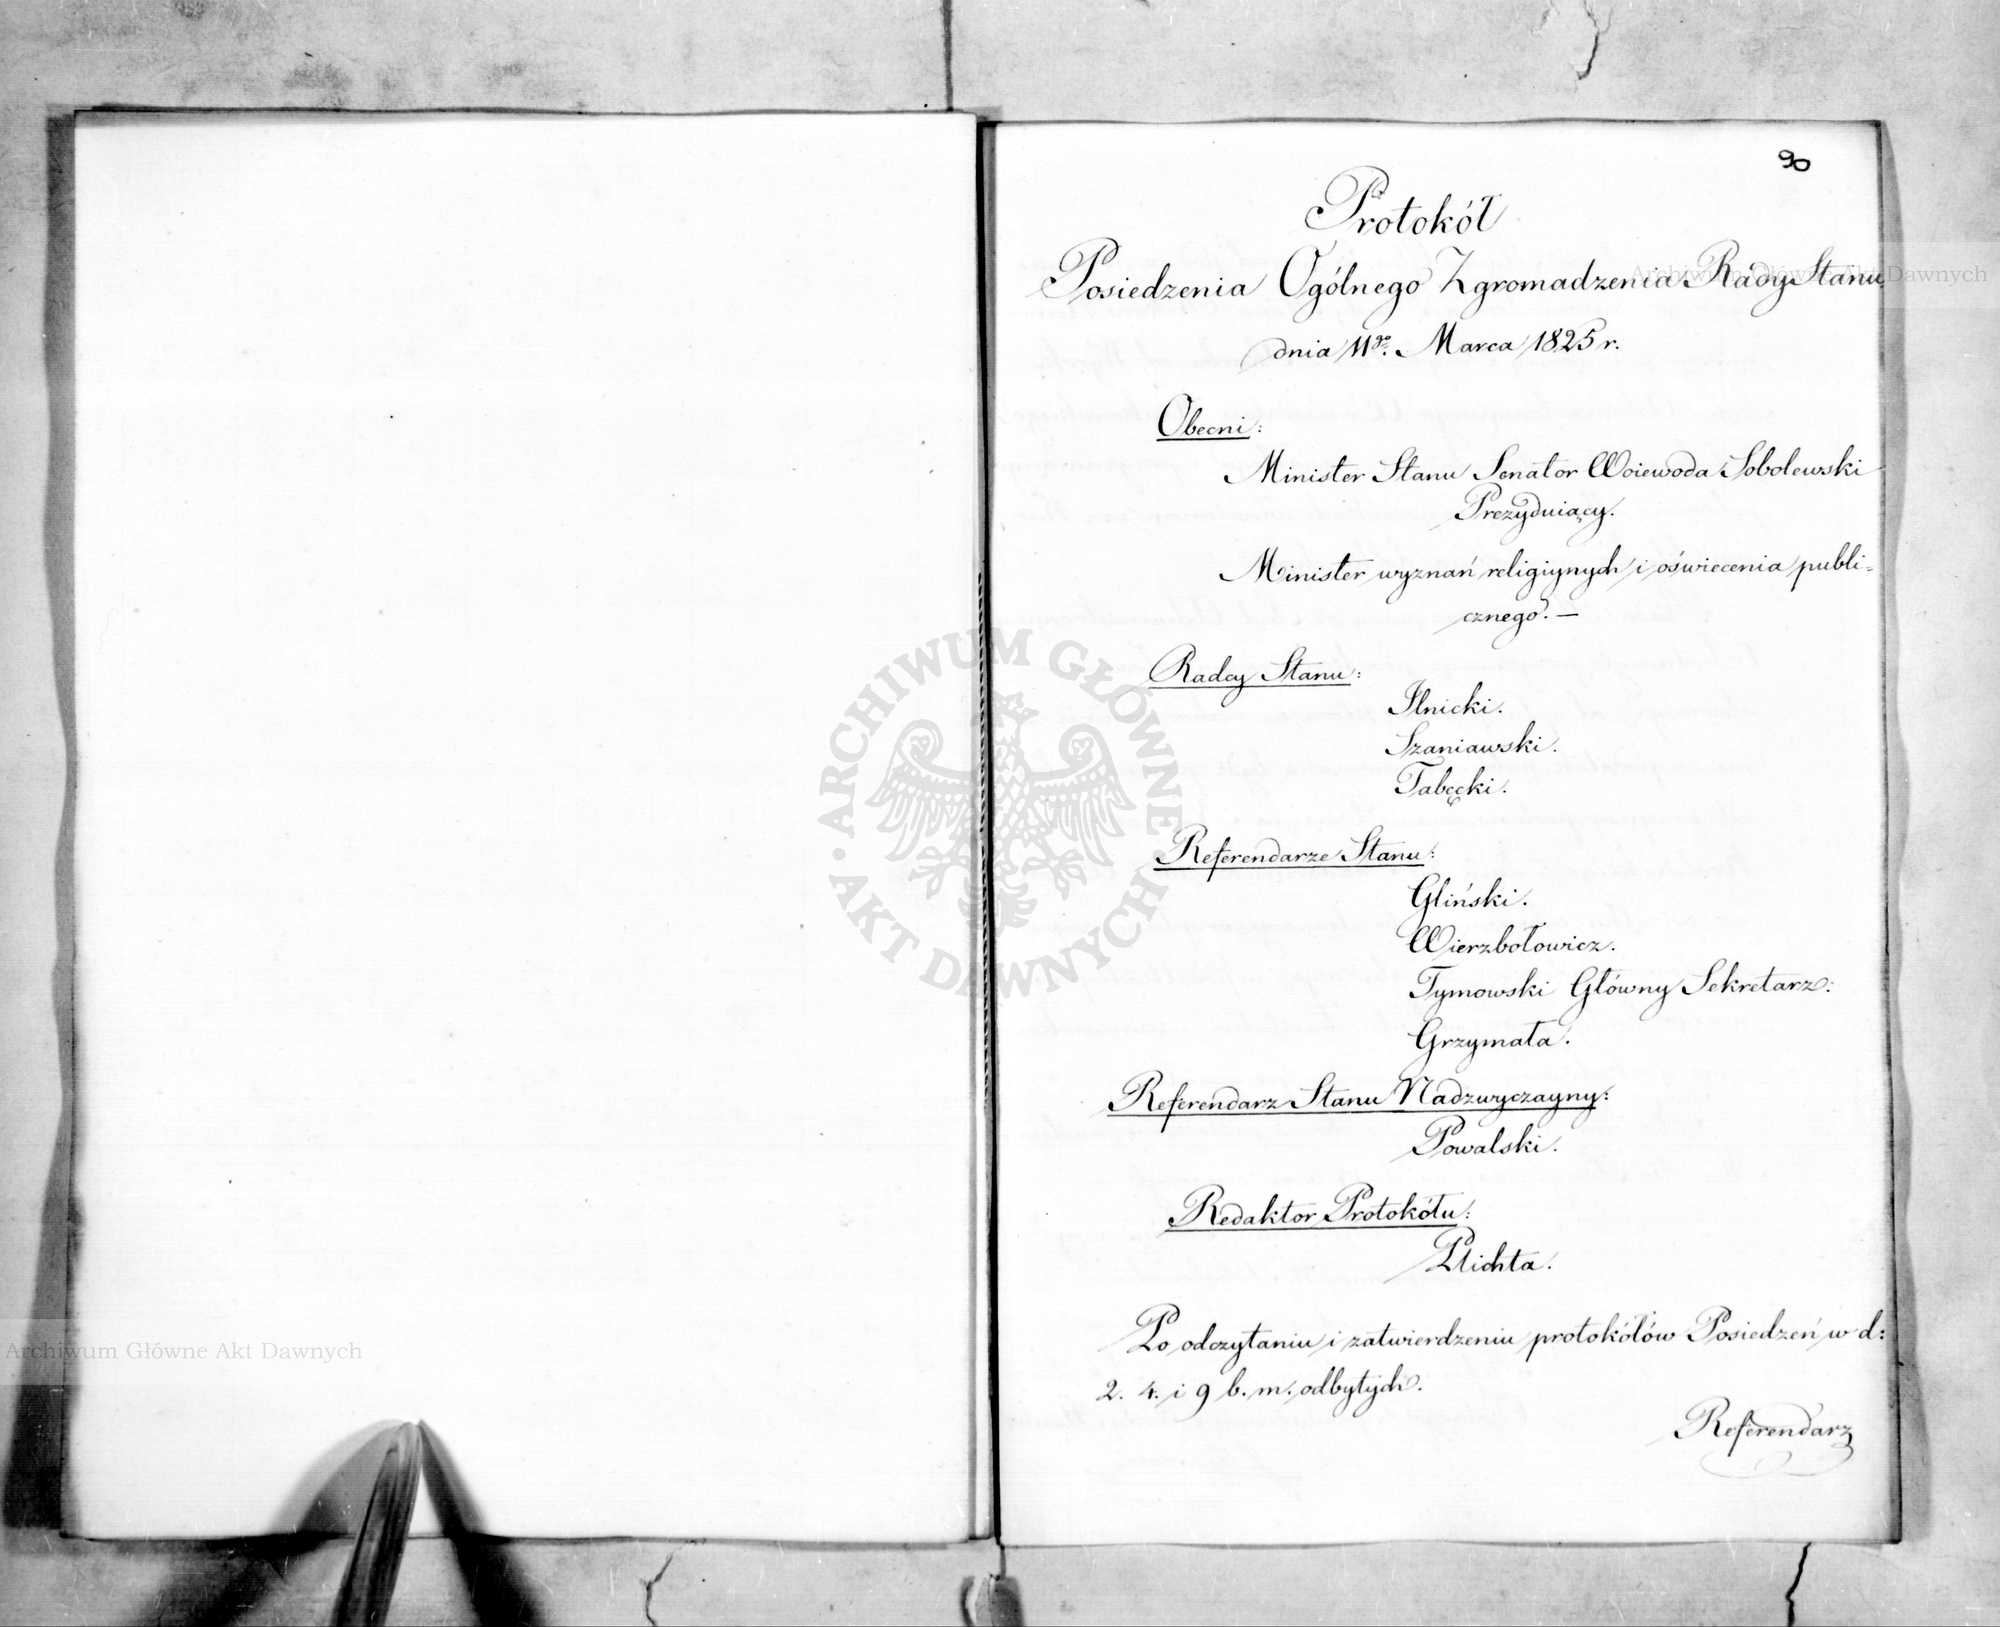 90
Protokół
Posiedzenia Ogólnego Zgromadzenia Rady Stanu
dnia 11go. Marca 1825 r.
Obecni:
Minister Stanu Senator Woiewoda Sobolewski
Prezyduiący.
Minister wyznań religiynych i oświecenia publi=
cznego. —
Radcy Stanu:
Ilnicki.
Szaniawski.
Tabęcki.
Referendarze Stanu:
Gliński.
Wierzbołowicz.
Tymowski Główny Sekretarz:
Grzymała.
Referendarz Stanu Nadzwyczayny:
Powalski.
Redaktor Protokółu:
Plichta.
Po odczytaniu i zatwierdzeniu protokółów Posiedzeń w d:
2. 4. i 9 b. m. odbytych.
Referendarz
ARCHIWUM GŁÓWNE
AKT DAWNYCH
Archiwum Główne Akt Dawnych
Archiwum Główne Akt Dawnych